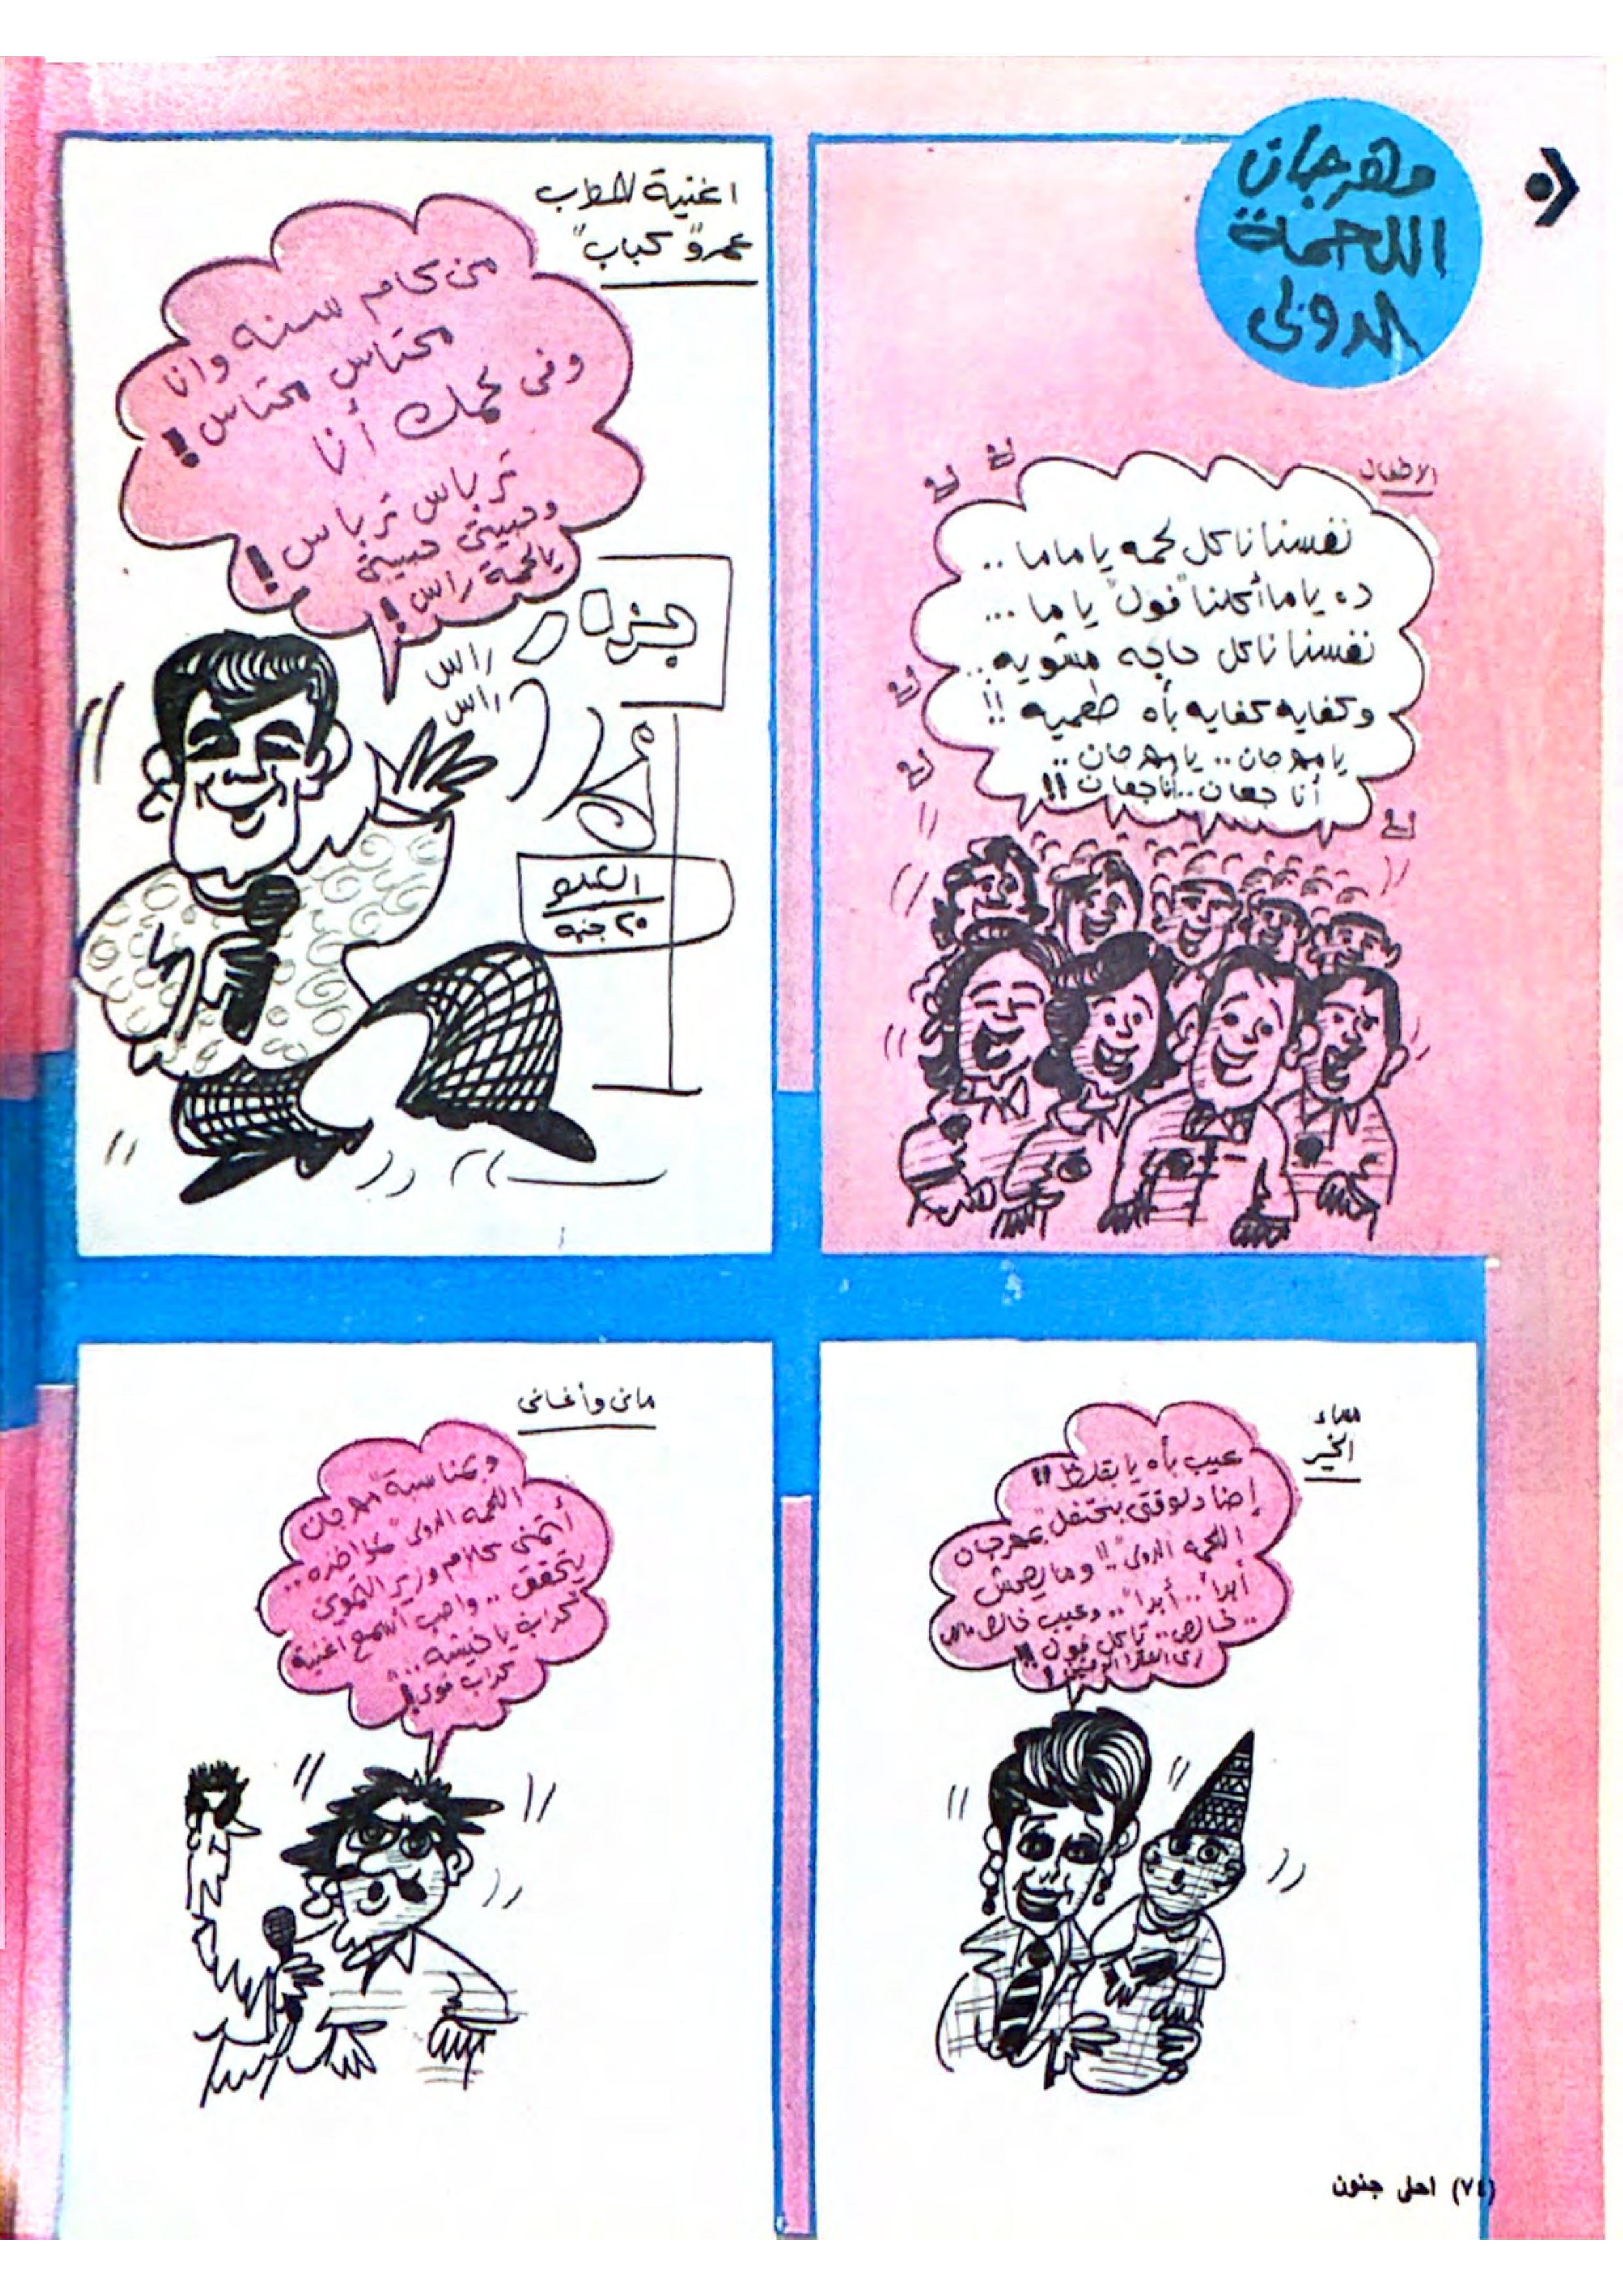 مهرجان
اللحمة
الدولى
الاطفال
نفسنا ناكل لحمه يا ماما ..
ده ياما أكلنا "فول" ياما ...
نفسنا ناكل حاجه مشويه ..
وكفايه كفايه بأه طعميه !!
يا مهرجان .. يا مهرجان ..
أنا جعان .. أنا جعان !!
اغنية للمطرب
عمرو "كباب"
من كام سنه وانا
محتاس محتاس !
وفى لحمك أنا
ترباس ترباس !
وحبيبتى حبيبتى
يا لحمة راس !
راس
راس
جزار
الكيلو
٢٠ جنيه
مساء
الخير
عيب بأه يا بقلظ !!
إحنا دلوقتى بنحتفل بمهرجان
اللحمه الدولى" !! وما يصحش
أبداً .. أبداً .. وعيب خالص
خالص .. تاكل فول !!
زى الفقرا
مانى وأغانى
وبمناسبة "مهرجان
اللحمه الدولى" ..
أتمنى كلام وزير التموين
يتحقق .. واحب أسمع اغنية
كداب يا خيشه ..
كداب قوى !!
(٧٤) احلى جنون